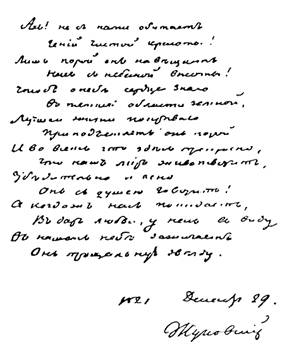 Ахъ! не съ нами обитаетъ
Геній чистой красоты!
Лишь порой онъ навѣщаетъ
Насъ съ небесной высоты!
Чтобъ о небѣ сердце знало
Въ темной области земной,
Лучшей жизни покрывало
Приподъемлетъ онъ порой
И во всемъ что здѣсь прекрасно,
Что нашъ міръ животворитъ,
Убѣдительно и ясно
Онъ съ душею говоритъ!
А когда насъ покидаетъ,
Въ даръ любви, у насъ въ виду
Въ нашемъ небѣ зажигаетъ
Онъ прощальную звѣзду.
29.
Жуковскій